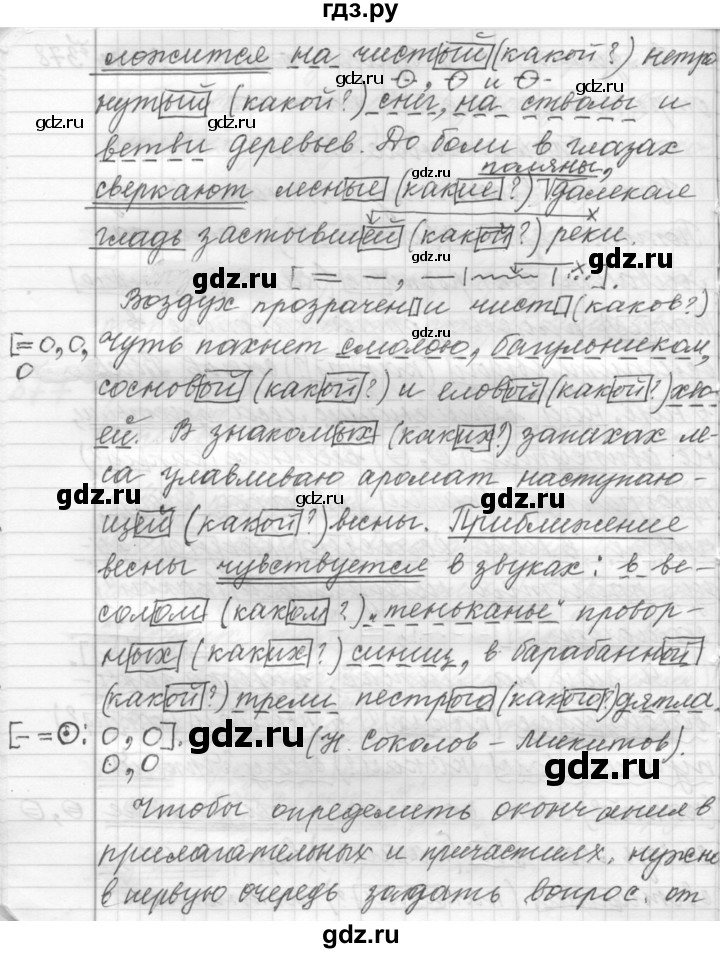 гдз.ру
ложится на чистый (какой?) нетро
нутый (какой?) снег, на стволы и
ветви деревьев. До боли в глазах
поляны,
сверкают лесные (какие?) √ далекая
гладь застывшей (какой?) реки.
Воздух прозрачен и чист (каков?)
чуть пахнет смолою, багульником,
сосновой (какой?) и еловой (какой?) хво-
ей. В знакомых (каких?) запахах ле-
са улавливаю аромат наступаю-
щей (какой?) весны. Приближение
весны чувствуется в звуках: в ве-
селом (каком?) „теньканье" провор-
ных (каких?) синиц, в барабанной
(какой?) трели пестрого (какого?) дятла.
[– = ʘ: O, O].
O, O
(Н. Соколов – Микитов).
Чтобы определить окончания в
прилагательных и причастиях, нужно
в первую очередь задать вопрос от
gdz.ru
gdz.ru
gdz.ru
gdz.ru
gdz.ru
gdz.ru
gdz.ru
gdz.ru
gdz.ru
gdz.ru
gdz.ru
gdz.ru
gdz.ru